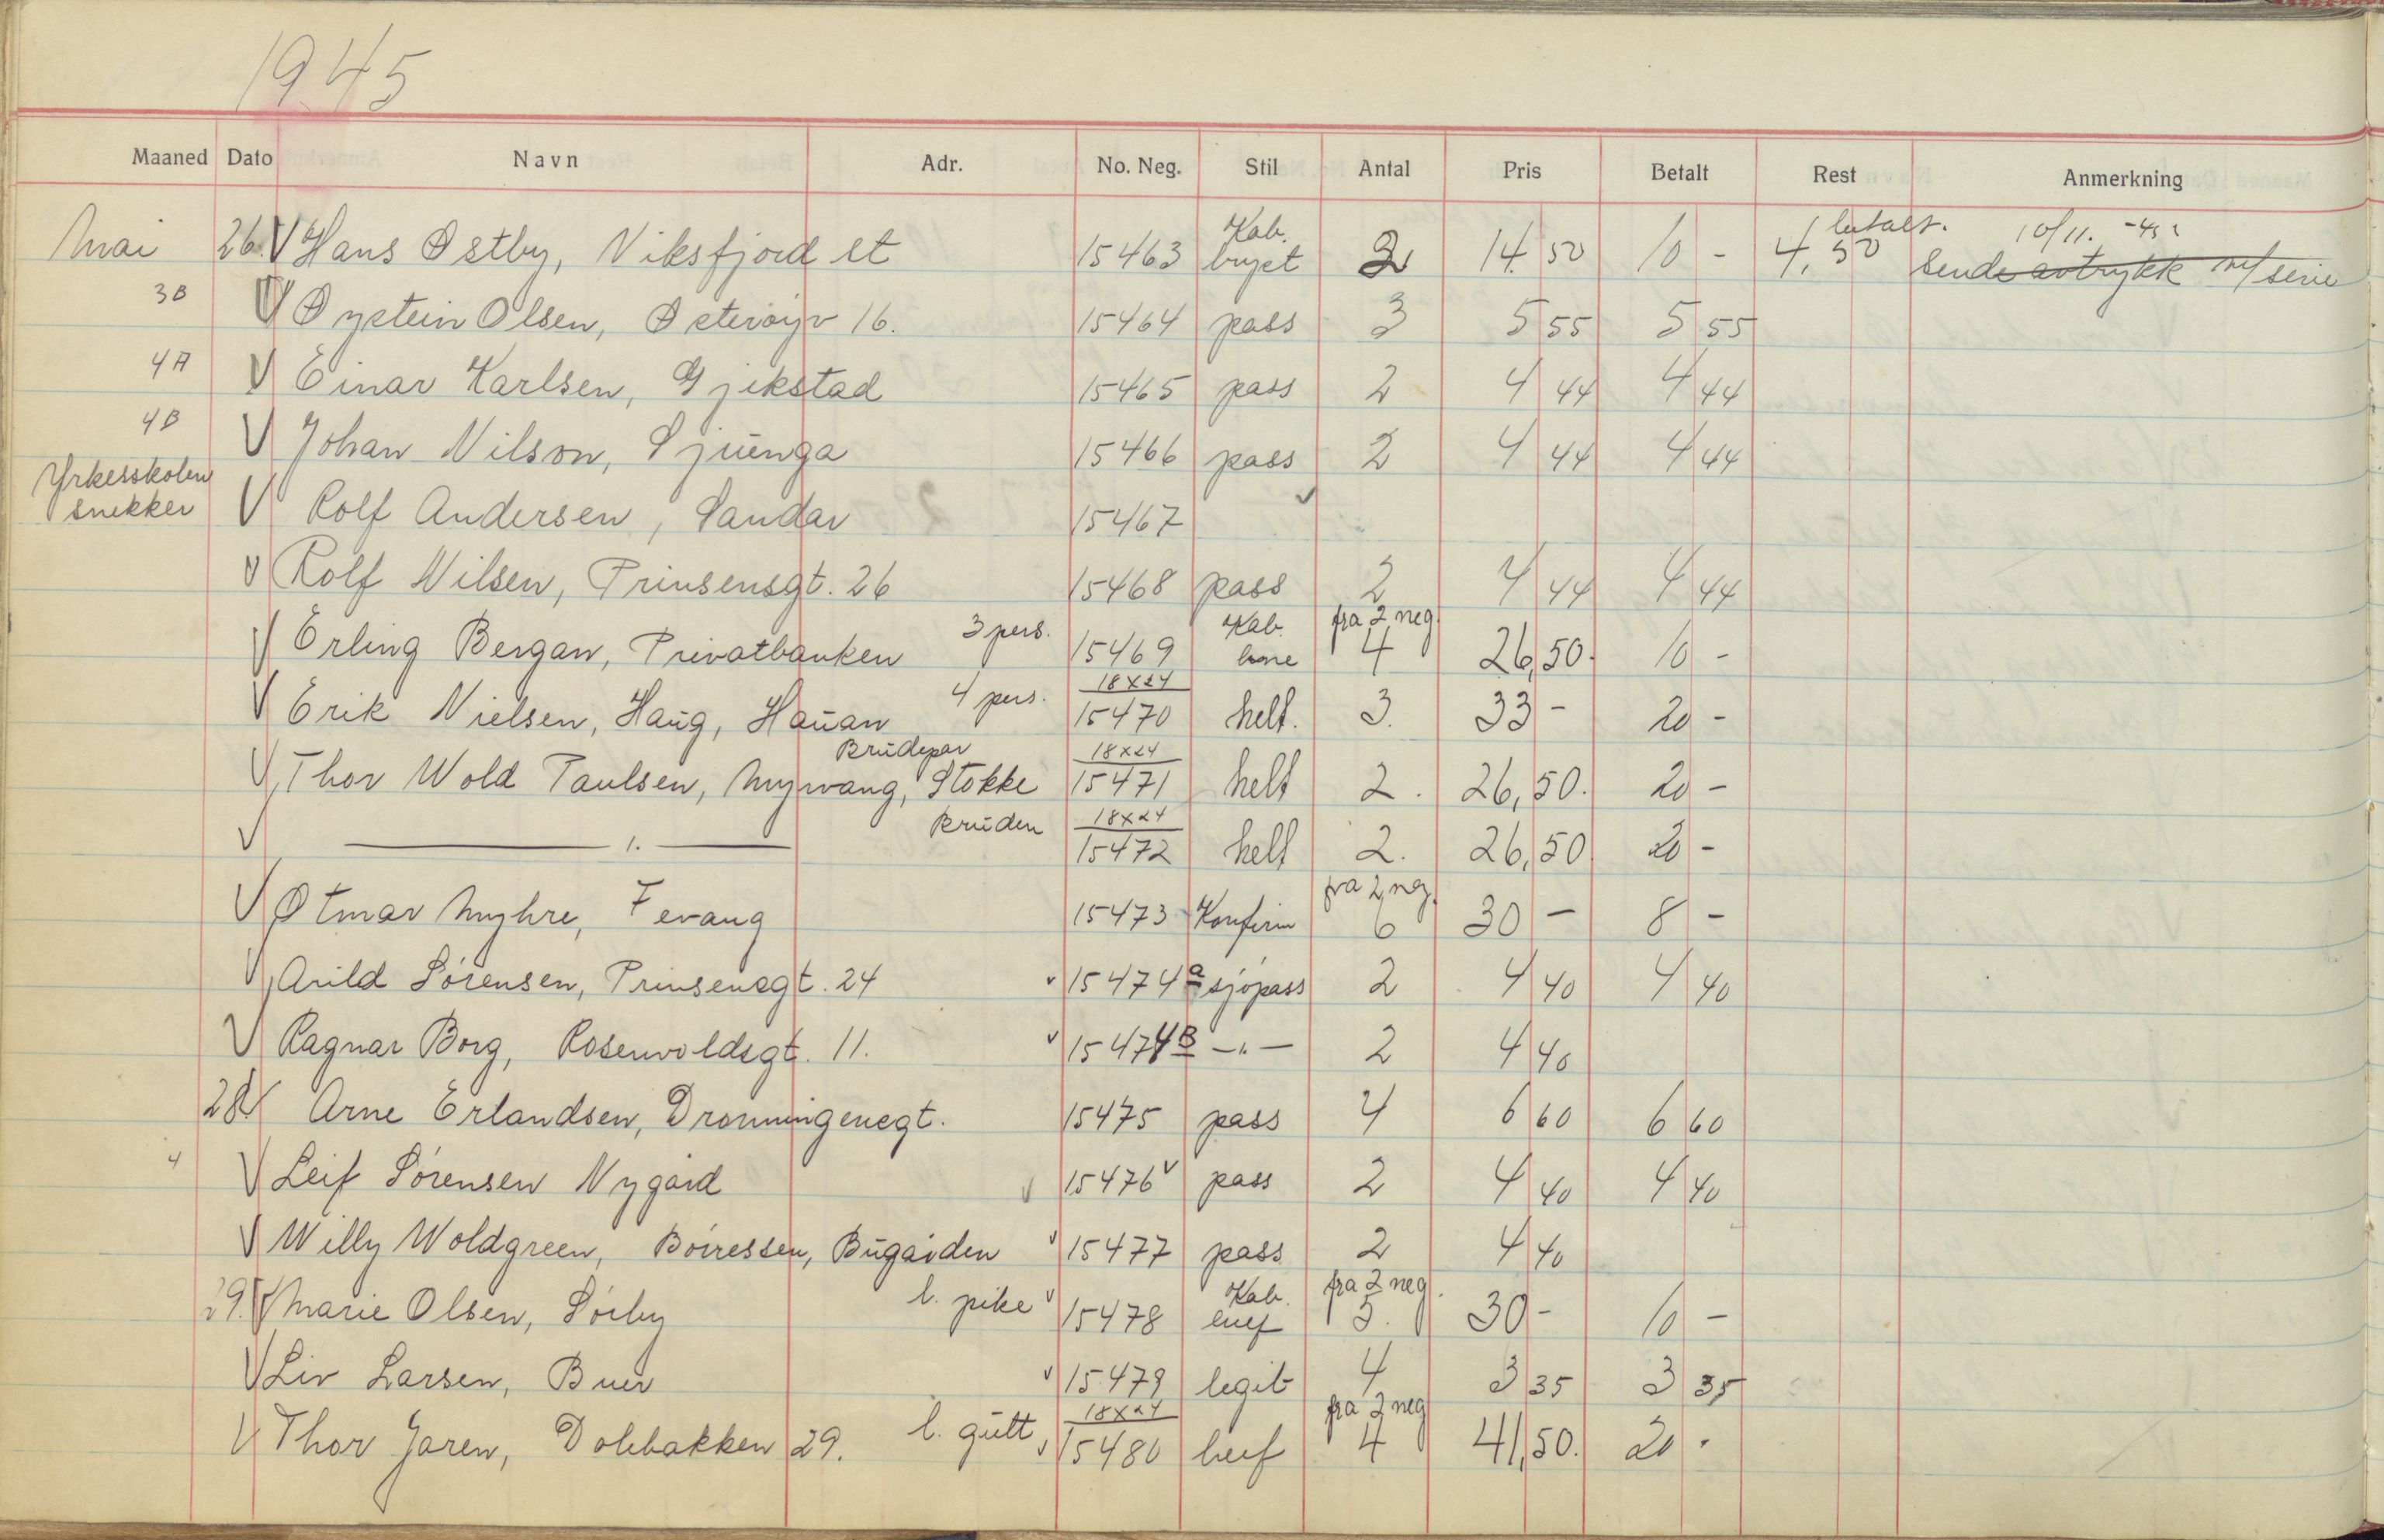 1945
Maaned Dato Navn Adr. No. Neg. Stil Antal Pris Betalt Rest Anmerkning
Mai 26. V Hans Østby, Viksfjord st 15463 Kab. bryst 2 14. 50 10 - 4,50 betalt. 10/11. -45 Sende avtrykk m/serie
3B V Øystein Olsen, Østerøyv 16. 15464 pass 3 5 55 5 55
4A V Einar Karlsen, Gjekstad 15465 pass 2 4 44 4 44
4B V Johan Nilson, Ljunga 15466 pass 2 4 44 4 44
Yrkesskolen snekker V Rolf Andersen, Sandar 15467
V Rolf Nilsen, Prinsensgt. 26 15468 pass 2 4 44 4 44
V Erling Bergan, Privatbanken 3 pers. 15469 Kab. fra 2 neg. 4 26,50. 10 -
V Erik Nielsen, Haug, Hauan 4 pers. 18x24 15470 helf. 3. 33 - 20 -
V Thor Wold Paulsen, Myrvang, Stokke Brudepar 18x24 15471 helf 2. 26,50. 20 -
V —— " —— Bruden 18x24 15472 helf 2. 26,50 20 -
V Otmar Myhre, Fevang 15473 Konfirm fra 2 neg. 6 30 - 8 -
V Arild Sörensen, Prinsensgt. 24 v 15474a sjöpass 2 4 40 4 40
V Ragnar Borg, Rosenvoldsgt. 11. v 15474B -"- 2 4 40
28. V Arne Erlandsen, Dronningensgt. 15475 pass 4 6 60 6 60
4 V Leif Sörensen Nygård v 15476 v pass 2 4 40 4 40
V Willy Woldgreen, Börressen, Bugården v 15477 pass 2 4 40
29. V Marie Olsen, Sörby l. pike v 15478 Kab. fra 2 neg. 5. 30 - 10 -
V Liv Larsen, Buer v 15479 legit 4 3 35 3 35
V Thor Jaren, Dölebakken 29. l. gutt v 18x24 15480 fra 2 neg 4 41,50. 20 -